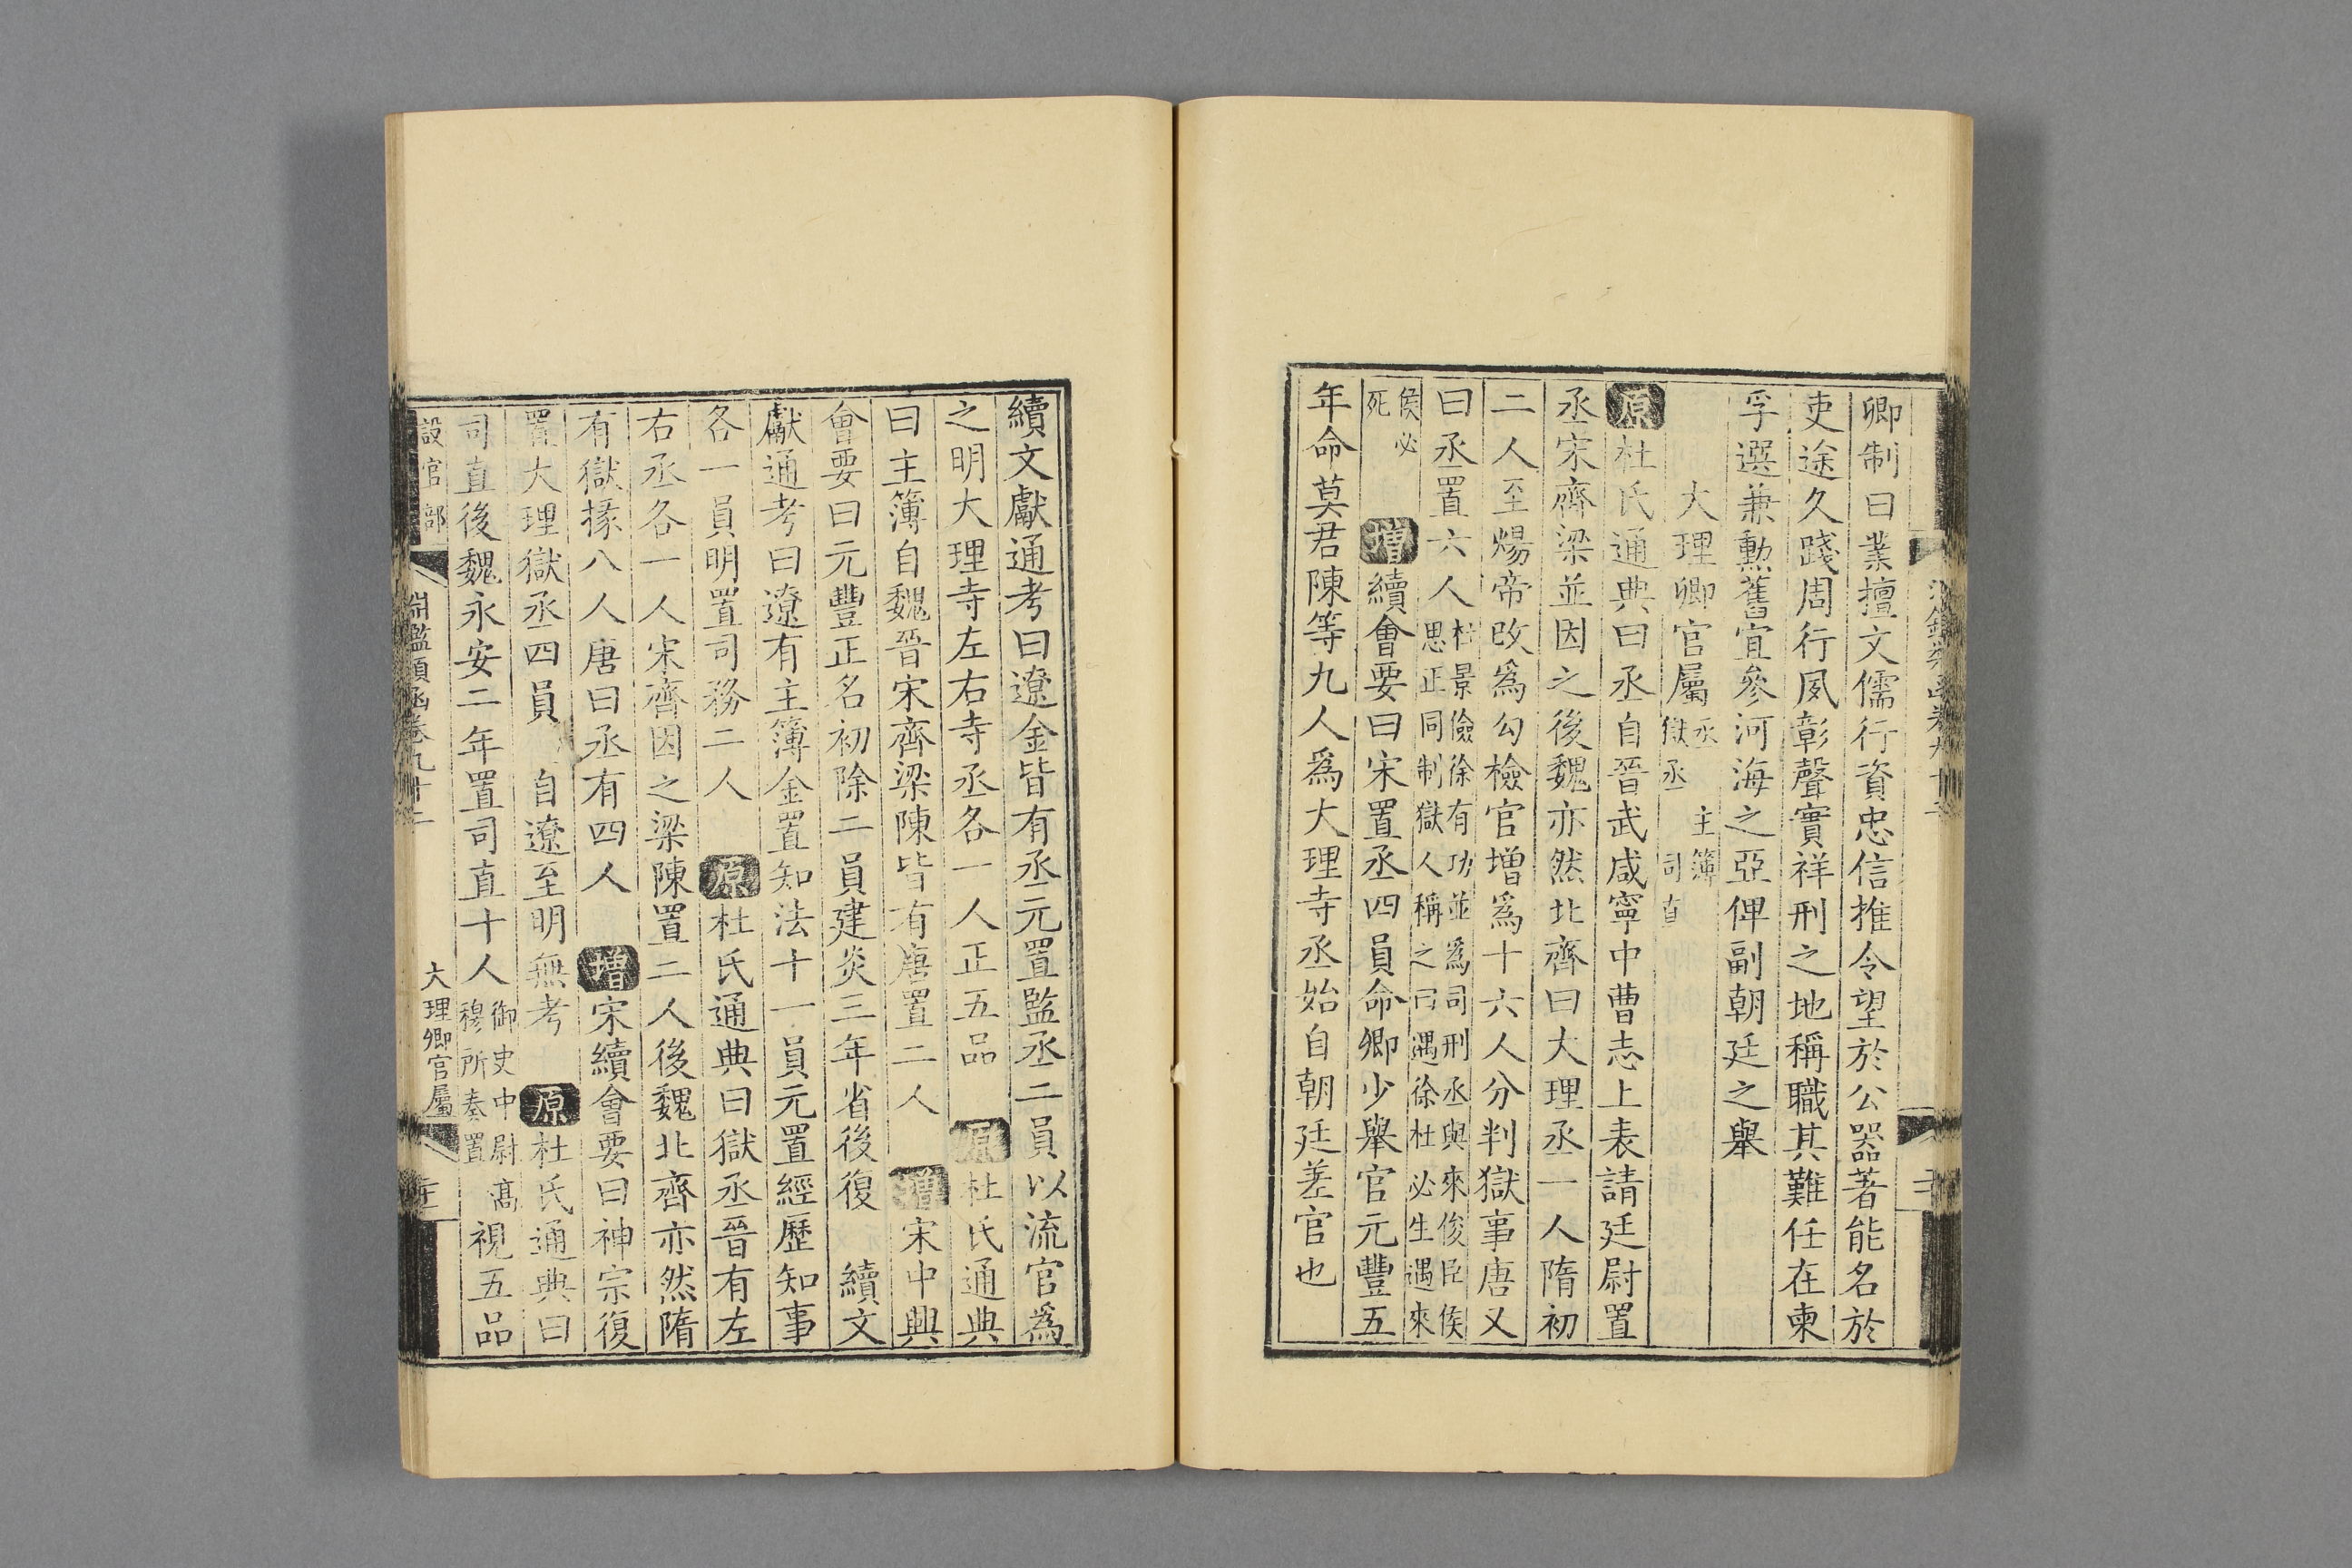 卿制曰業擅文儒行資忠信推令望於公器著能名於
吏途久踐周行夙彰聲實祥刑之地稱職其難任在柬
孚選兼勲舊宜參河海之亞俾副朝廷之舉
大理卿官屬丞 主簿 獄丞 司直
原杜氏通典曰丞自晉武咸寧中曹志上表請廷尉置
丞宋齊梁並因之後魏亦然北齊曰大理丞一人隋初
二人至煬帝改爲勾檢官增爲十六人分判獄事唐又
曰丞置六人杜景儉徐有功並爲司刑丞與來俊臣侯思正同制獄人稱之曰遇徐杜必生遇來
侯必死 增續會要曰宋置丞四員命卿少舉官元豐五
年命莫君陳等九人爲大理寺丞始自朝廷差官也
續文獻通考曰遼金皆有丞元置監丞二員以流官爲
之明大理寺左右寺丞各一人正五品 原杜氏通典
曰主簿自魏晉宋齊梁陳皆有唐置二人 增宋中興
會要曰元豐正名初除二員建炎三年省後復 續文
獻通考曰遼有主簿金置知法十一員元置經歷知事
各一員明置司務二人 原杜氏通典曰獄丞晉有左
右丞各一人宋齊因之梁陳置二人後魏北齊亦然隋
有獄掾八人唐曰丞有四人 增宋續會要曰神宗復
置大理獄丞四員 自遼至明無考 原杜氏通典曰
司直後魏永安二年置司直十人御史中尉高穆所奏置視五品
設官部 淵鑑類函卷九十二 大理卿官屬